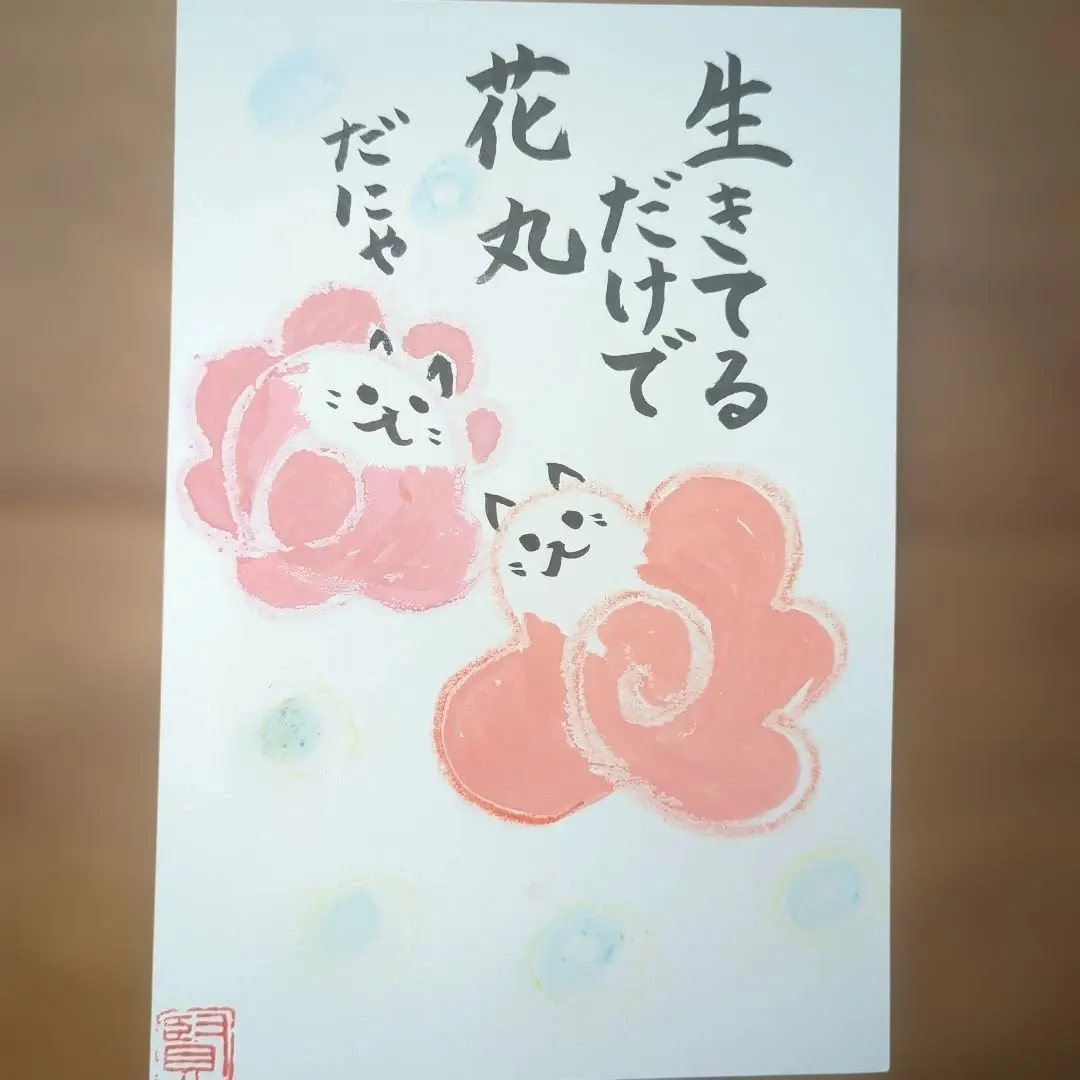 生きてる
だけで
花丸
だにゃ
賢